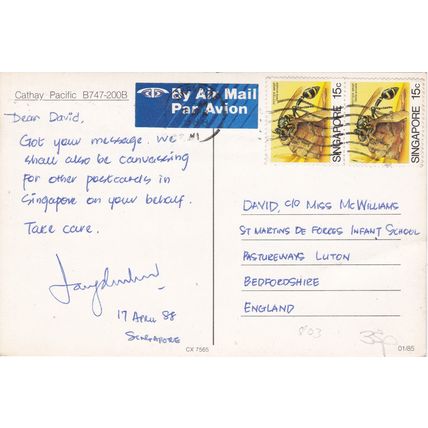 Cathay Pacific B747-200B
By Air Mail
Par Avion
SINGAPORE 15c
SINGAPORE 15c
Dear David,
Got your message. We
shall also be canvassing
for other postcards in
Singapore on your behalf.
Take care.
17 April 88
Singapore
David, c/o Miss McWilliams
St Martins de Forres Infant School
Pastureways Luton
Bedfordshire
England
CX 7565
01/85